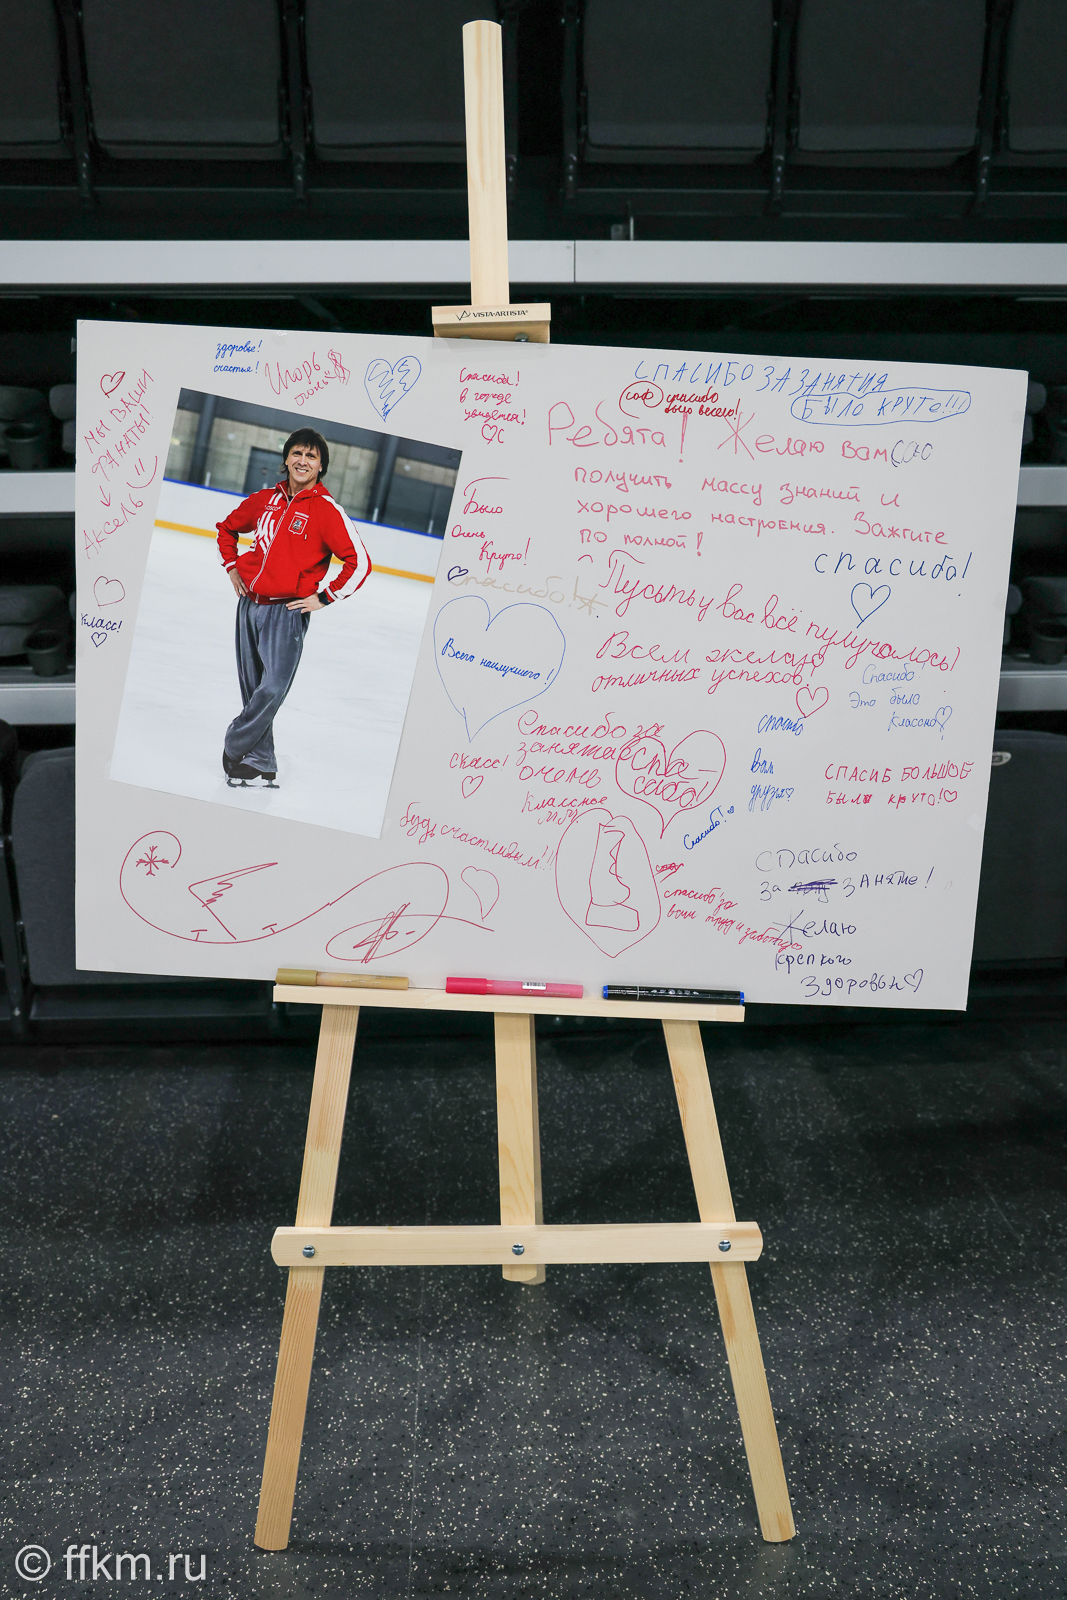 VISTA-ARTISTA
здоровье!
счастье!
Игорь
огонь!!
Спасибо!
в городе
увидетса!
С
СПАСИБО ЗА ЗАНЯТИЯ
БЫЛО КРУТО!!!
соф спасибо
было весело!
Ребята! Желаю вам
получить массу знаний и
хорошего настроения. Зажгите
по полной!
МЫ ВАШИ
ФАНАТЫ!
Аксель
Класс!
Было
Очень
Круто!
Спасибо!
спасибо!
Пусть у вас всё пулучалось!
Всем желаю
отличных успехов!
Всего наилучшего!
Спасибо
Это было
Классно
Спасибо за
занятие
очень
Классное
спа-
сибо!
Класс!
спасибо
вам
друзья
СПАСИБ БОЛЬШОЕ
было круто!
Спасибо!
будь счастливым!!!
спасибо за
ваш труд и заботую
спасибо
за занятие!
Желаю
крепкого
здоровья
© ffkm.ru